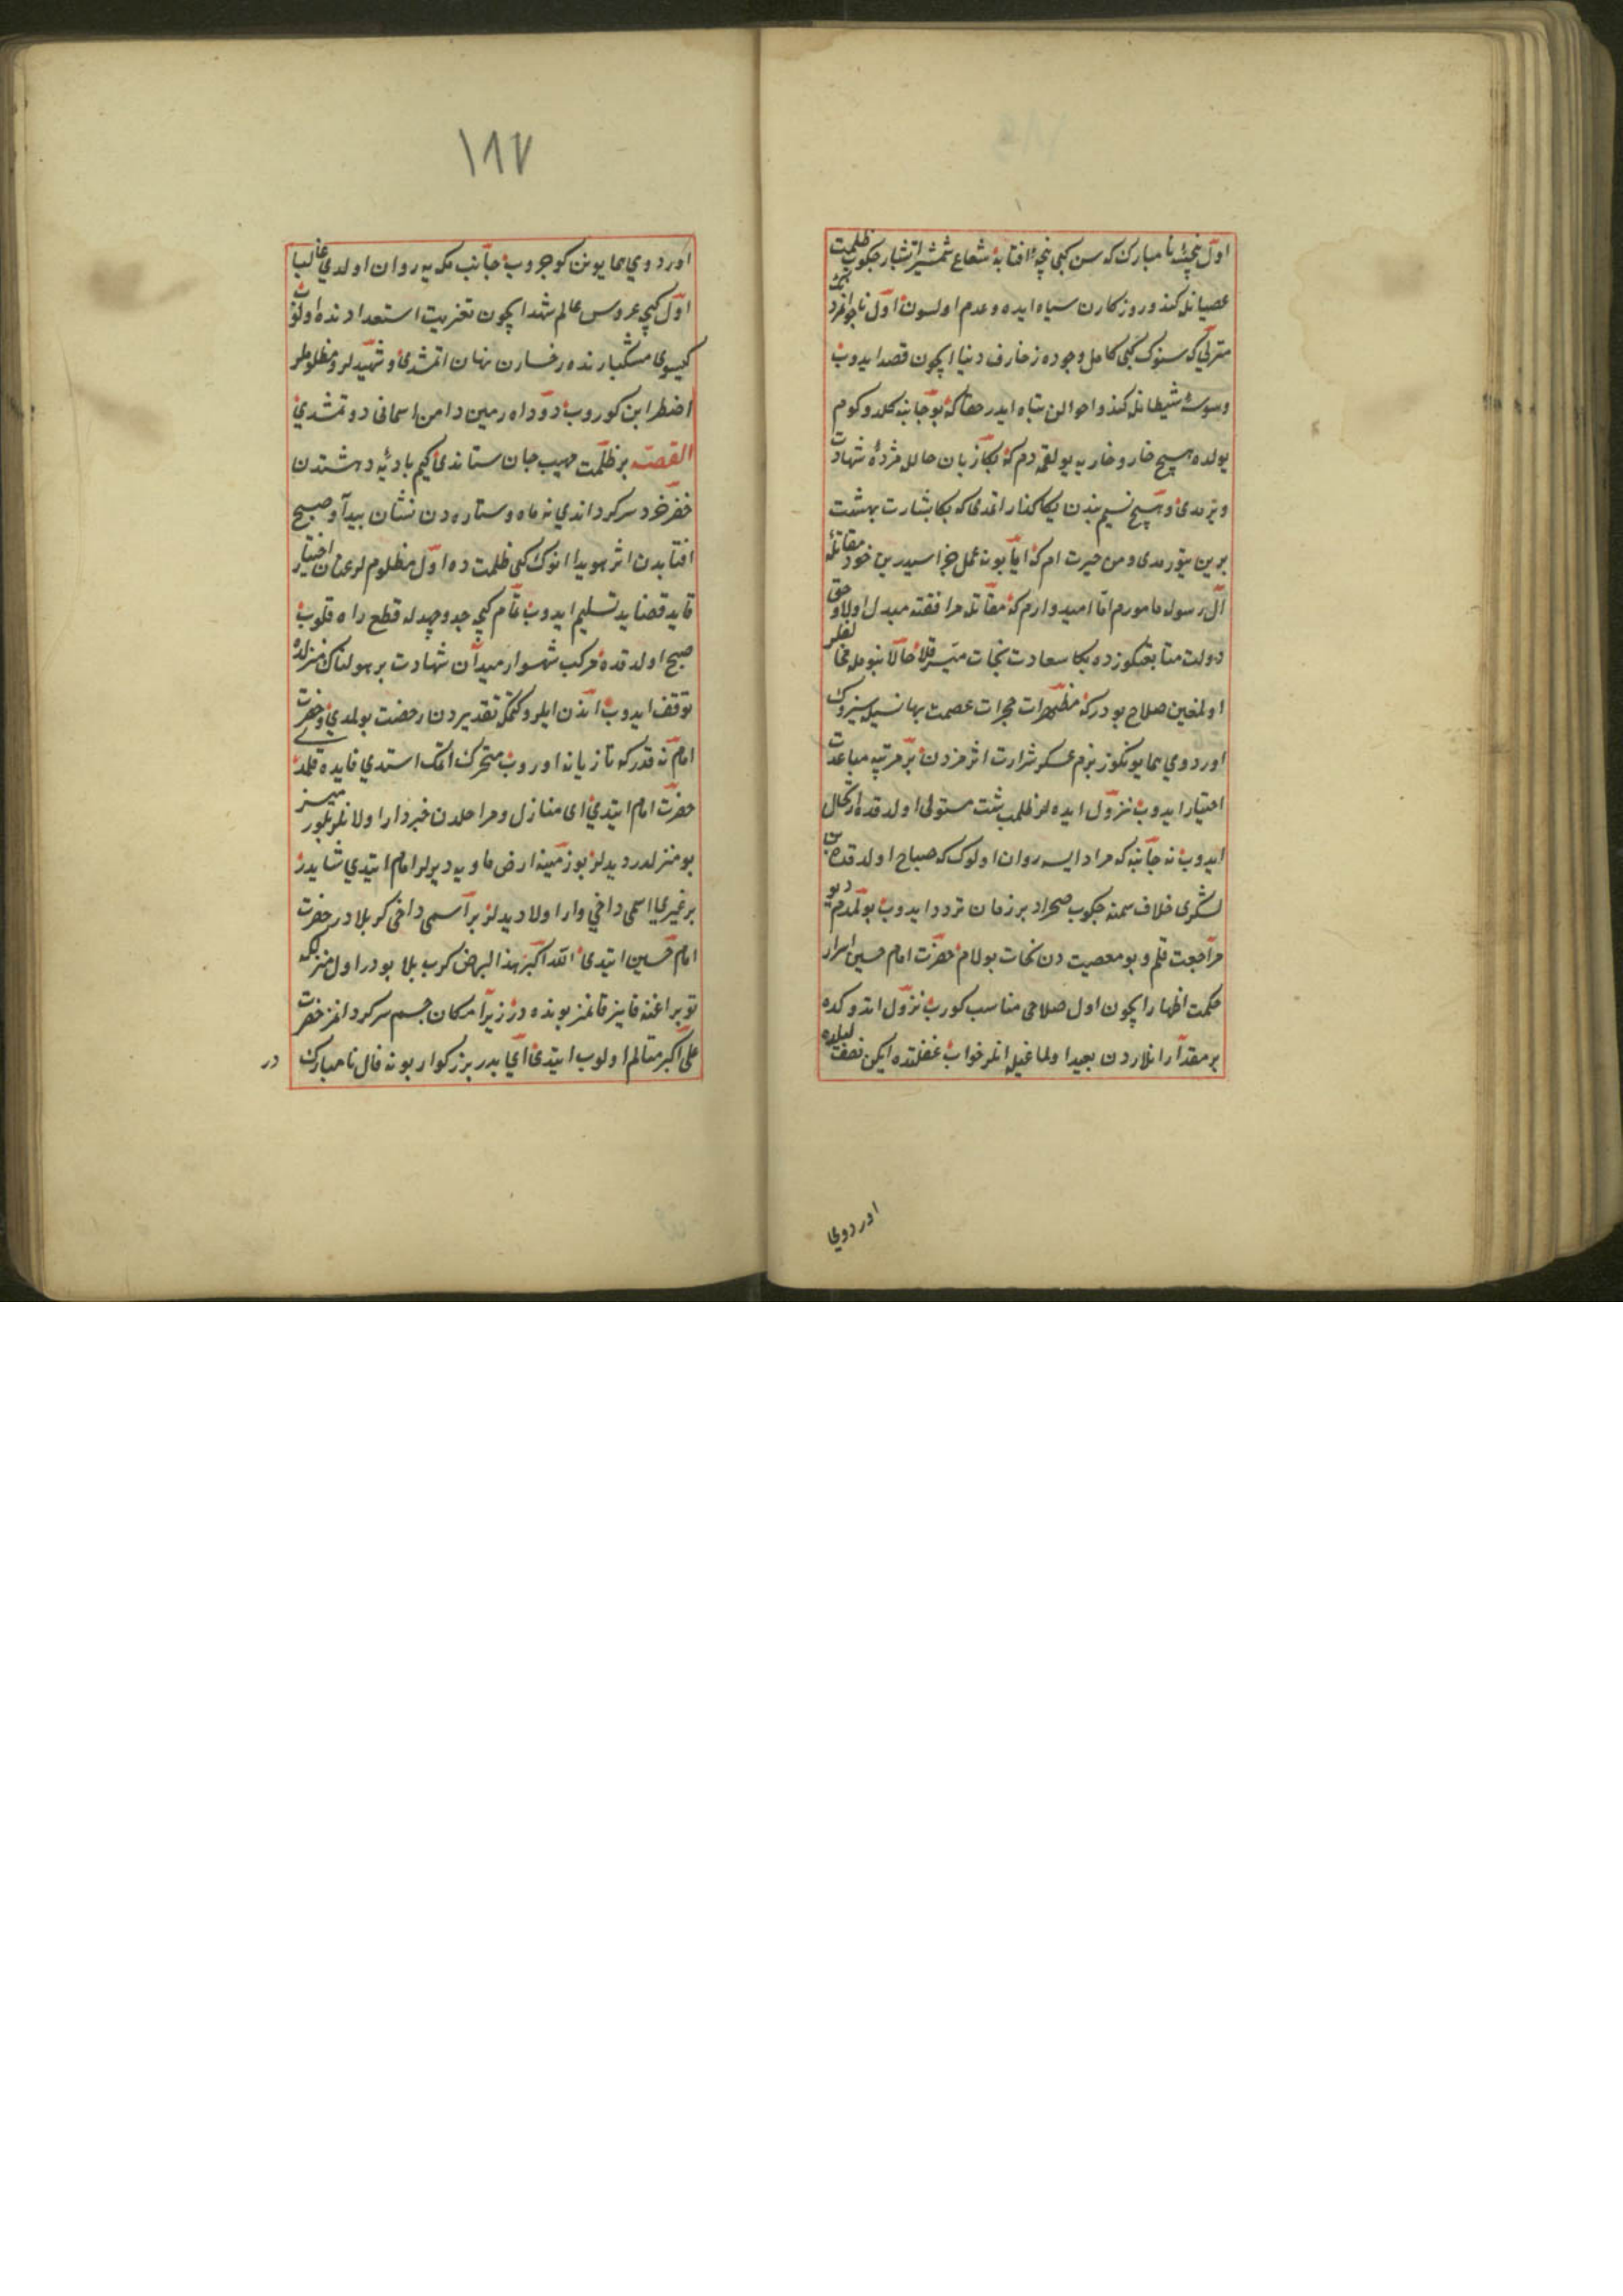 اول پنجهٔ نا مبارك كه سن كبی پنجهٔ افتابه شعاع شمشیر اتشبار چكوب ظلمت
عصیانله كندو روزكارن سیاه ایده و عدم اولسون اول ناجوانمرد
كه سنوك كبی كامل وجوده زخارف دنیا ایچون قصد ایدوب
وسوسهٔ شیطانله كندو احوالن تباه ایدر حقا كه بو جانبه كلدوكوم
یولده هیچ خار و خاریه یولقمدم كه بكا زبان حالله مژدهٔ شهادت
ویرمدی و هیچ نسیمندن بكا كذار اتمدی كه بكا بشارت بهشت
برین یتورمدی و من حیرت ام كه ایا بو نه عمل جزاسیدر بن خود مقاتلهٔ
آل رسوله مامورم اما امیدوارم كه مقاتله مرافقته مبدل اولا و حق
دولت متابعتكوزده بكا سعادت نجات میسر قلا حالا بنومله مخالفلر
اولمغین صلاح بودر كه مطهرات حجرات عصمت بهانه سیله سنزوك
اوردوی همایونكوز بزم عسكر شرارت اثرمزدن بر مرتبه مباعدت
اختیار ایدوب نزول ایده لر ظلمت شب مستولی اولدقده ارتحال
ایدوب نه جانبه كه مراد ایسه روان اولوك كه صباح اولدقده بن
لشكری خلاف سمته چكوب صحراده بر زمان تردد ایدوب بولمدم دیو
مراجعت قلم و بو معصیت دن نجات بولام حضرت امام حسین اسرار
حكمت اظهار ایچون اول صلاحی مناسب كورب نزول اتدوكده
بر مقدار انلاردن بعید اولماغیله انلر خواب غفلتده ایكن نصف لیلده
اوردوی
١٨٧
اوردوی همایونن كوچروب جانب مكه یه روان اولدی غالبا
اول كیجه عروس عالم شهدا ایچون تعزیت استعدادنده اولوب
كیسوی مشكبارنده رخسارن نهان اتمشدی و شهیدلر و مظلوملر
اضطرابن كوروب دود اه زمین دامن اسمانی دوتمشدی
القصه بر ظلمت مهیب جان ستاندی كیم بادیهٔ دهشتدن
خضر خرد سركرداندی نه ماه و ستاره دن نشان پیدا و صبح
افتابدن اثر هویدا انوك كبی ظلمت ده اول مظلوملر عنان اختیار
قاید قضایه تسلیم ایدوب تمام كیجه جد و جهد له قطع راه قلوب
صبح اولدقده مركب شهسوار میدان شهادت بر هولناك منزلده
توقف ایدوب اندن ایلرو كتمكه تقدیردن رخصت بولمدی و حضرت
امام نه قدر كه تازیانه اوروب متحرك اتمك استدی فایده قلمدی
حضرت امام ایتدی ای منازل و مراحلدن خبردار اولانلر بلورمیسز
بو منزلدر دیدلر بو زمینه ارض ماویه دیرلر امام ایتدی شاید
بر غیری اسمی داخی وار اولا دیدلر بر اسمی داخی كربلا در حضرت
امام حسین ایتدی الله اكبر هذا الارض كرب بلا بودر اول منزل كه
توپراغنه قانیز قانمز بونده در زیرا مكان جسم سركردانمز حضرت
علی اكبر متالم اولوب ایتدی ای پدر بزركوار بو نه فال نا مبارك
در